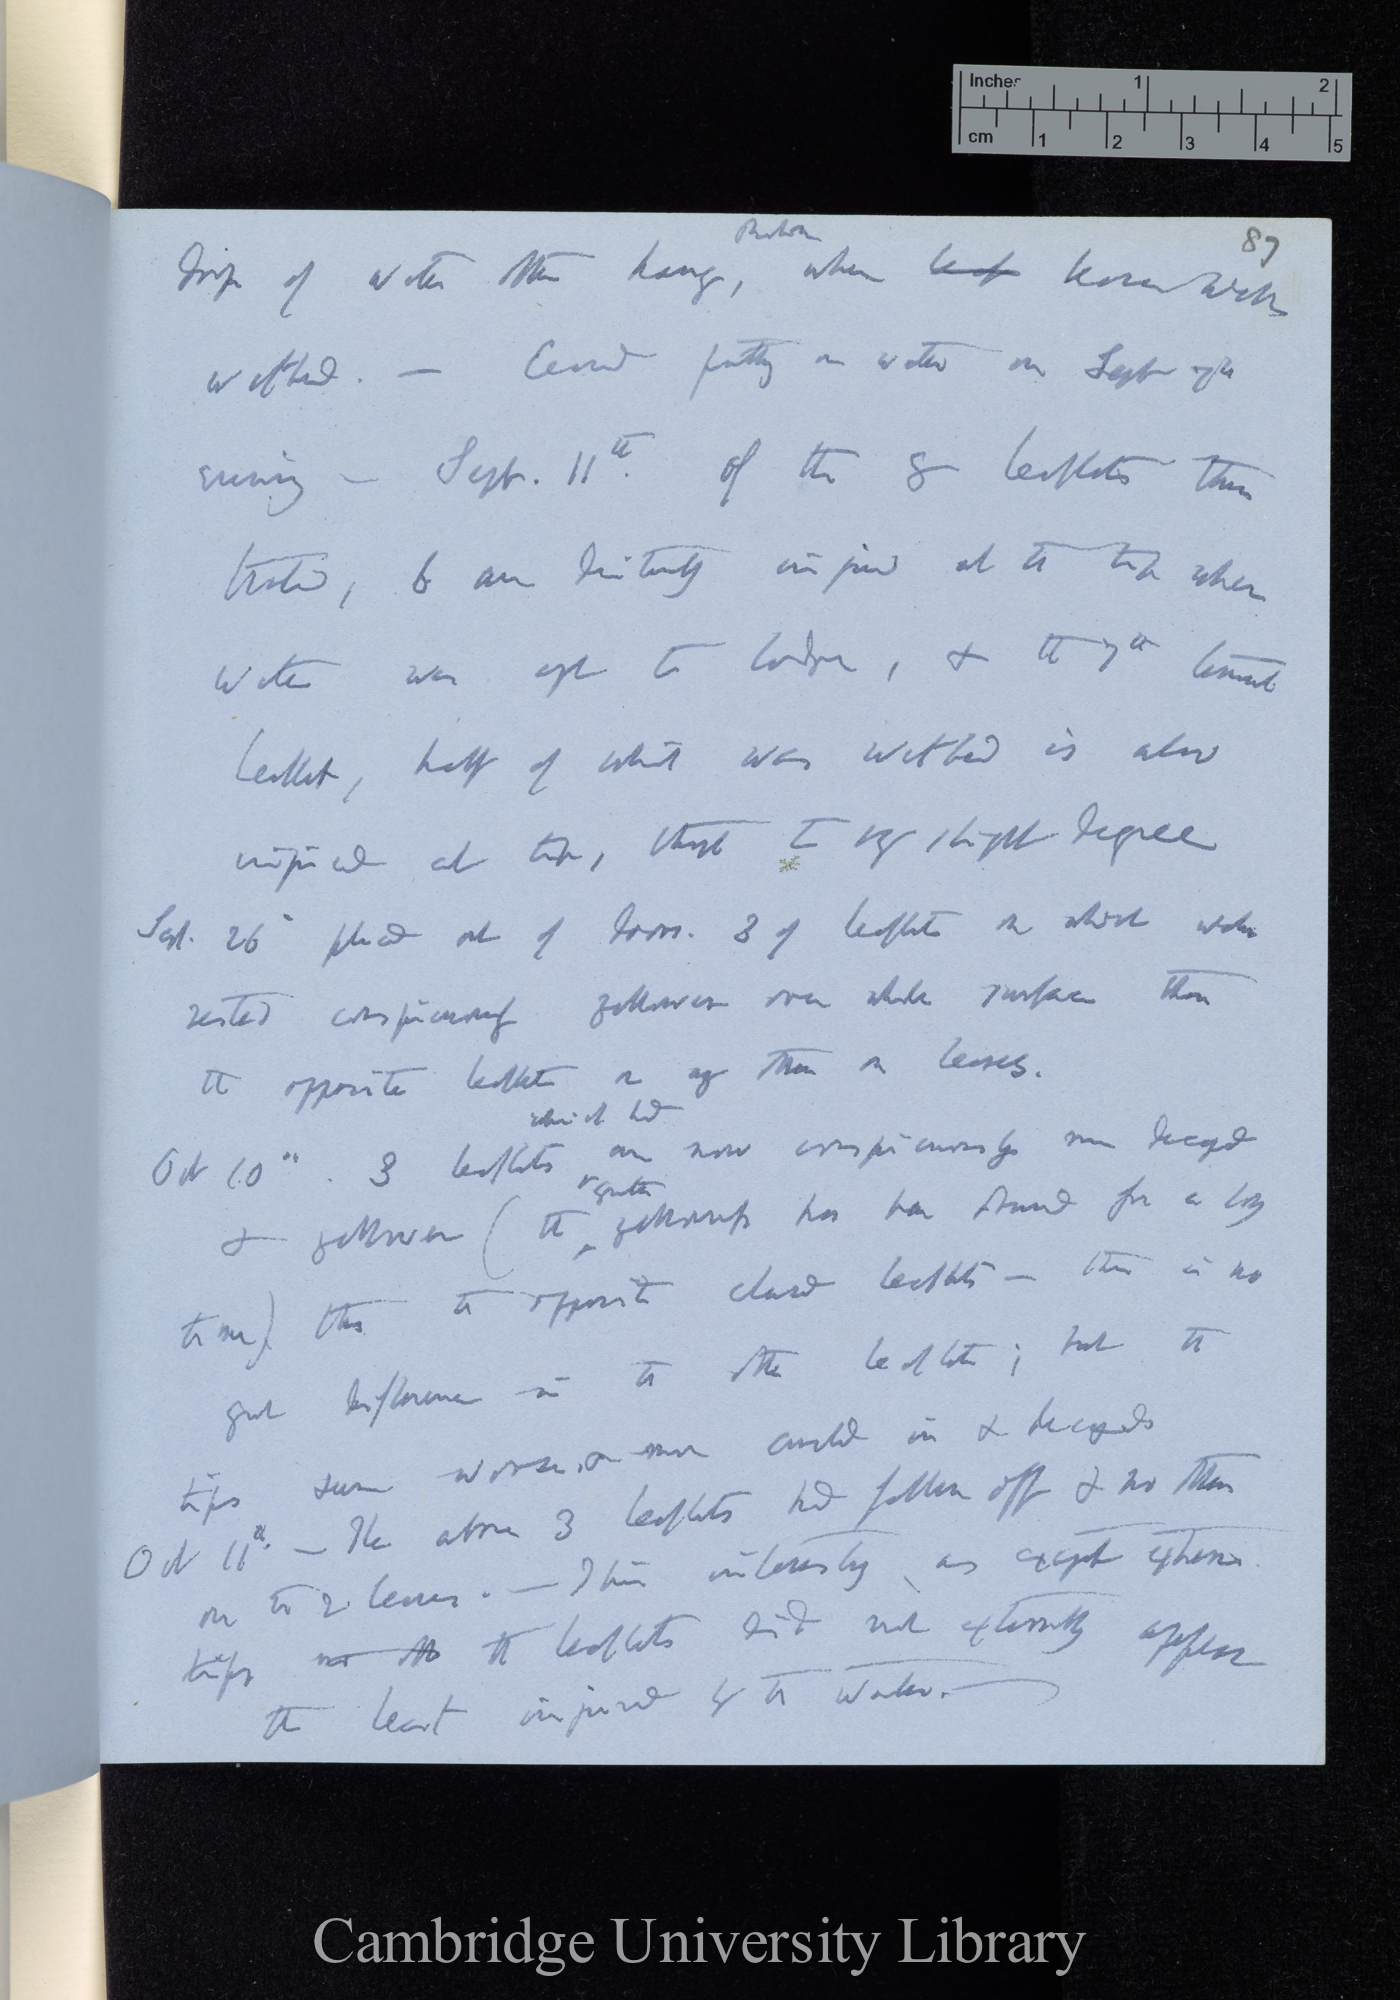 Inches 1 2
cm 1 2 3 4 5
87
drops of water then hang, when leaf leaves
wetted. — Ceased putting on water on Sept 7th
evening — Sept. 11th. Of the 8 leaflets thus
treated, 6 are distinctly injured at the tip where
water was apt to lodge, & the 7th terminal
leaflet, half of which was wetted is also
injured at tip, though to very slight degree
Sept. 26th placed out of doors. 3 of leaflets on which water
rested conspicuously yellower over whole surface than
the opposite leaflets or any than on leaves.
which had
Oct 10th. 3 leaflets are now conspicuously more decayed
greater
& yellower (the yellowness has been for a long
time) than the opposite leaflets — there is no
great difference in the other leaflets; but the
tips seem worse, or more curled in & decayed
Oct 11th. — The above 3 leaflets had fallen off & no others
on the 2 leaves. — This interesting, as except extreme
tips the leaflets did not externally appear
the least injured by the water. —
Cambridge University Library